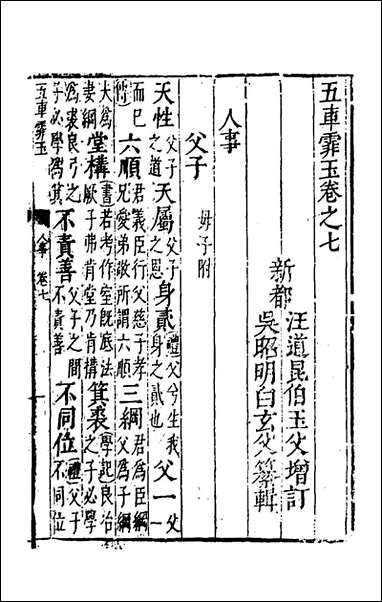 五車霏玉卷之七
新都
汪道昆伯玉父增訂
吳昭明白玄父纂輯
人事
父子 母子附
天性 父子之道 天屬 父子之恩 身貳 禮父兮生我身之貳也 父一 父一
而已傳 六順 君義臣行父慈子孝兄愛弟敬所謂六順 三綱 君為臣綱父為子綱
夫為妻綱 堂構 書若考作室既底法厥子弗肯堂乃肯構 箕裘 學記良冶之子必學
為裘良弓之子必學為箕 不責善 父子之間不責善 不同位 禮父子不同位
五車霏玉 人事 卷七